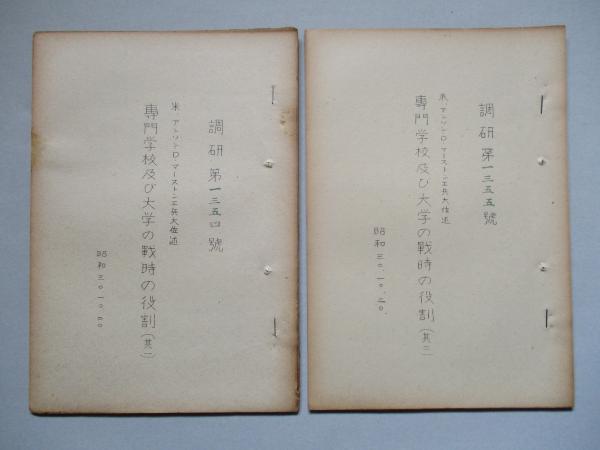 調研第一三五四號
米 アンソンD.マーストン工兵大佐述
専門学校及び大学の戰時の役割(其一)
昭和三〇.一〇.二〇
調研第一三五五號
米 アンソンD.マーストン工兵大佐述
専門学校及び大学の戰時の役割(其二)
昭和三〇.一〇.二〇.